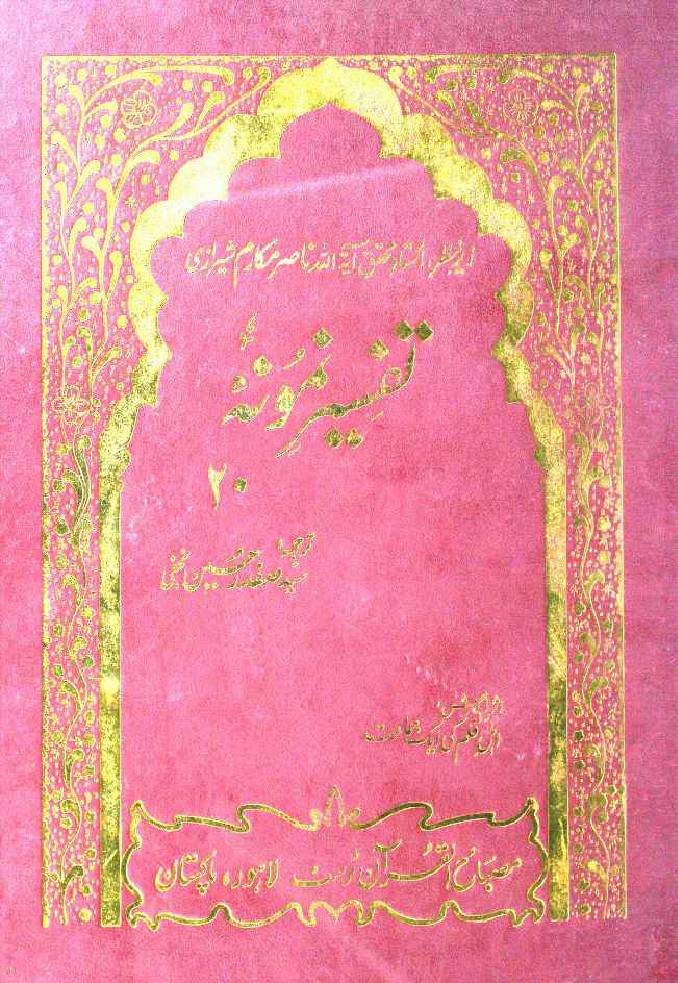 ازیرنظر استاد محقق آیۃ اللہ ناصر مکارم شیرازی
تفسیر نمونہ
۲۰
ترجمہ
سید صفدر حسین نجفی
اہل قلم کی ایک جماعت
مصباح القرآن ٹرسٹ لاہور، پاکستان